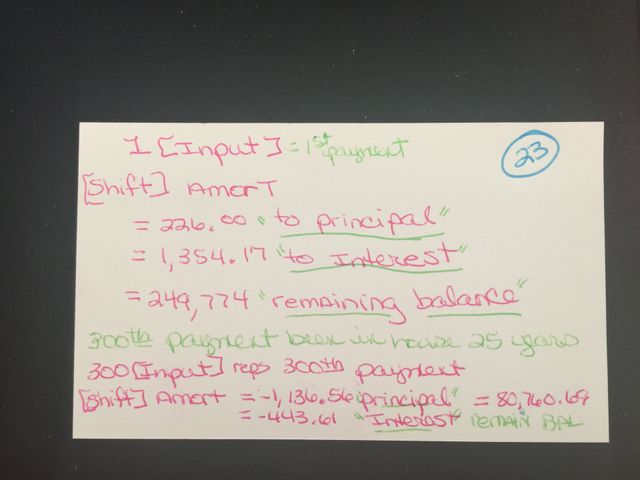 1 [Input] = 1st payment
23
[Shift] Amort
= 226.00 "to principal"
= 1,354.17 "to Interest"
= 249,774 "remaining balance"
300th payment been in house 25 years
300 [Input] reps 300th payment
[Shift] Amort = -1,136.56 "principal" = 80,760.69
= -443.61 "Interest" REMAIN BAL